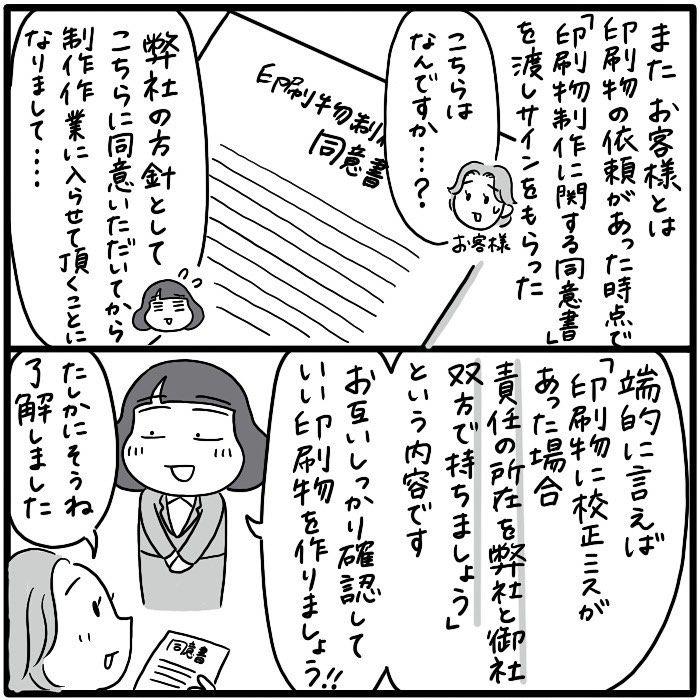 また お客様とは
印刷物の依頼があった時点で
「印刷物制作に関する同意書」
を渡しサインをもらった
こちらは
なんですか…?
お客様
印刷物制
同意書
弊社の方針として
こちらに同意いただいてから
制作作業に入らせて頂くことに
なりまして‥‥
端的に言えば
「印刷物に校正ミスが
あった場合
責任の所在を弊社と御社
双方で持ちましょう」
という内容です
お互いしっかり確認して
いい印刷物を作りましょう!!
たしかにそうね
了解しました
同意書